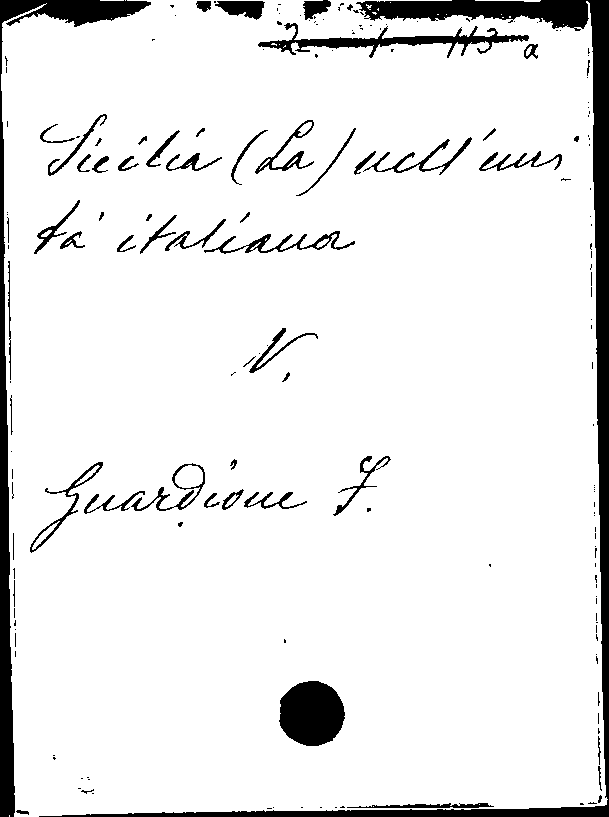 2. 1. 113 a
Sicilia (La) nell'uni-
tà italiana
V.
Guardione F.